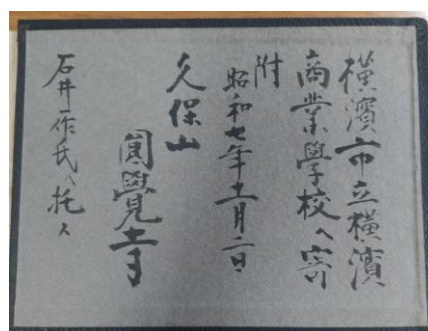 横濱市立横濱
商業學校へ寄
附
昭和七年十一月二日
久保山
圓覺寺
石井作氏へ托ス